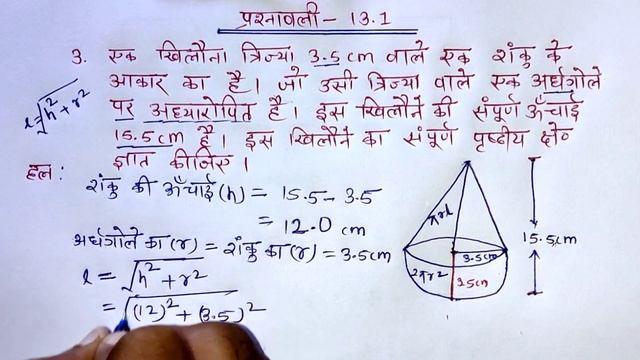 प्रश्नावली - 13.1
3. एक खिलौना त्रिज्या 3.5 cm वाले एक शंकु के
आकार का है। जो उसी त्रिज्या वाले एक अर्धगोले
पर अध्यारोपित है। इस खिलौने की संपूर्ण ऊँचाई
15.5 cm है। इस खिलौने का संपूर्ण पृष्ठीय क्षे०
ज्ञात कीजिए।
l=√h²+r²
हल:
शंकु की ऊँचाई (h) = 15.5 - 3.5
= 12.0 cm
अर्धगोले का (r) = शंकु का (r) = 3.5cm
l = √h² + r²
= √(12)² + (3.5)²
πrl
15.5cm
3.5cm
2πr²